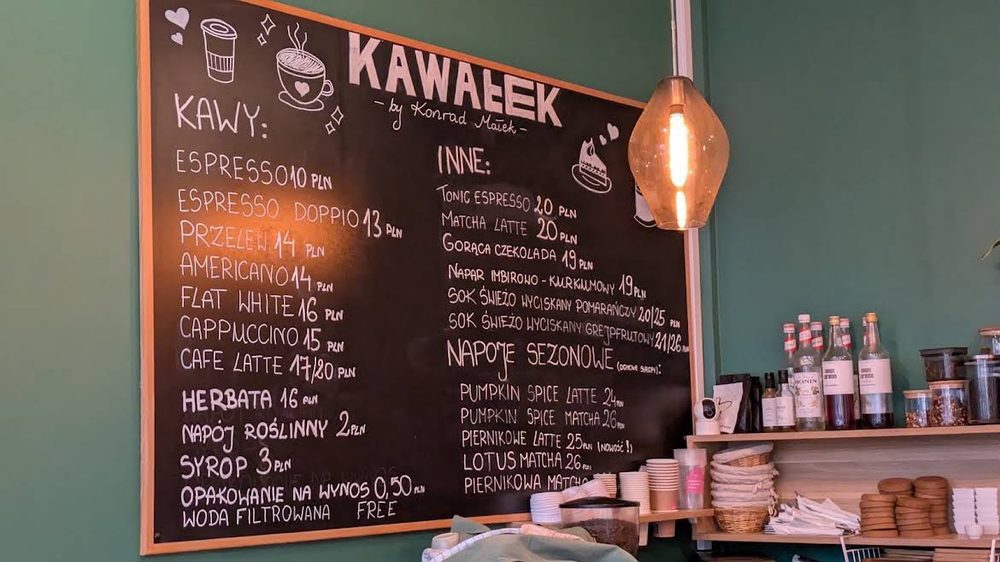 KAWAŁEK
- by Konrad Małek -
KAWY:
ESPRESSO 10 PLN
ESPRESSO DOPPIO 13 PLN
PRZELEW 14 PLN
AMERICANO 14 PLN
FLAT WHITE 16 PLN
CAPPUCCINO 15 PLN
CAFE LATTE 17/20 PLN
HERBATA 16 PLN
NAPÓJ ROŚLINNY 2 PLN
SYROP 3 PLN
OPAKOWANIE NA WYNOS 0,50 PLN
WODA FILTROWANA FREE
INNE:
TONIC ESPRESSO 20 PLN
MATCHA LATTE 20 PLN
GORĄCA CZEKOLADA 19 PLN
NAPAR IMBIROWO - KURKUMOWY 19 PLN
SOK ŚWIEŻO WYCISKANY POMARAŃCZY 20/25 PLN
SOK ŚWIEŻO WYCISKANY GREJPFRUTOWY 21/26 PLN
NAPOJE SEZONOWE (DOMOWE SYROPY):
PUMPKIN SPICE LATTE 24 PLN
PUMPKIN SPICE MATCHA 26 PLN
PIERNIKOWE LATTE 25 PLN (NOWOŚĆ!)
LOTUS MATCHA 26 PLN
PIERNIKOWA MATCHA
MONIN